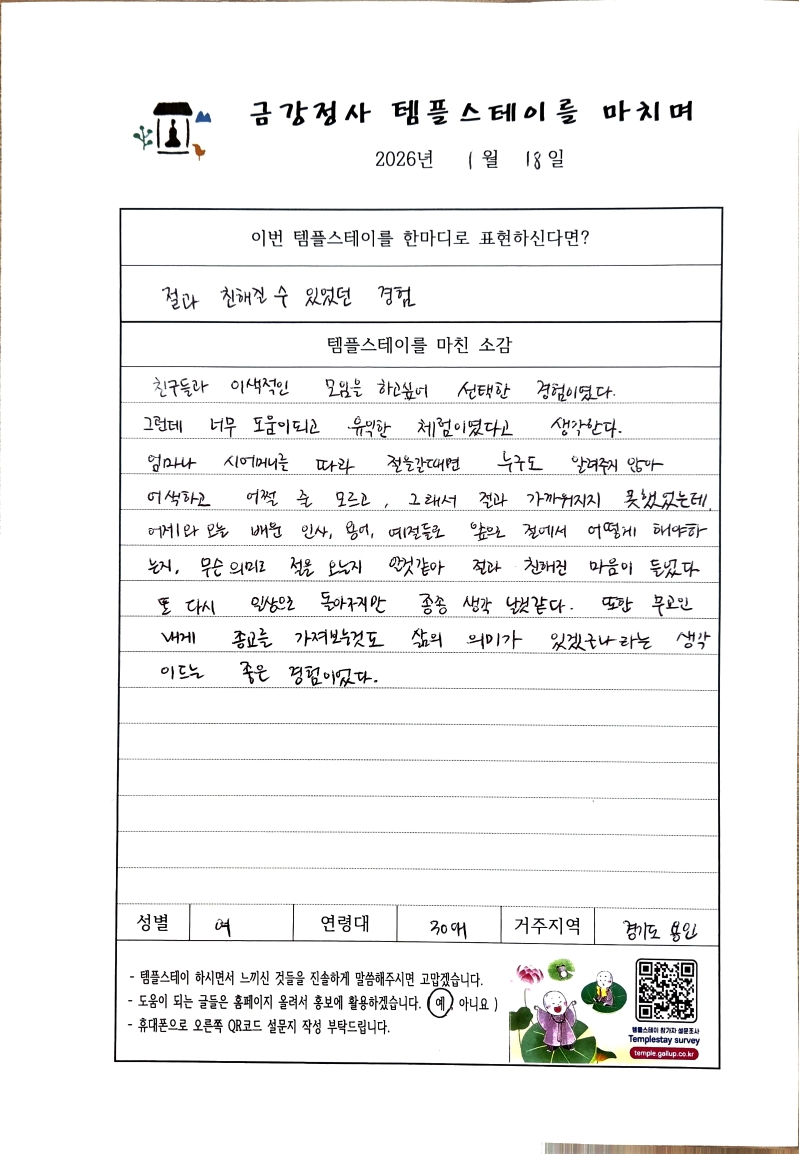 금강정사 템플스테이를 마치며
2026년 1월 18일
이번 템플스테이를 한마디로 표현하신다면?
절과 친해진 수 있었던 경험
템플스테이를 마친 소감
친구들과 이색적인 모임을 하고싶어 선택한 경험이었다.
그런데 너무 도움이되고 유익한 체험이었다고 생각한다.
엄마나 시어머니를 따라 절을갈때면 누구도 알려주지 않아
어색하고 어쩔 줄 모르고, 그래서 절과 가까워지지 못했었는데,
어제와 오늘 배운 인사, 용어, 예절들로 앞으로 절에서 어떻게 해야하
는지, 무슨 의미로 절을 오는지 안것같아 절과 친해진 마음이 들었다
또 다시 일상으로 돌아가지만 종종 생각 날것같다. 또한 무교인
내게 종교를 가져보는것도 삶의 의미가 있겠구나라는 생각
이드는 좋은 경험이었다.
성별 여 연령대 30대 거주지역 경기도 용인
- 템플스테이 하시면서 느끼신 것들을 진솔하게 말씀해주시면 고맙겠습니다.
- 도움이 되는 글들은 홈페이지 올려서 홍보에 활용하겠습니다. ( 예 , 아니요 )
- 휴대폰으로 오른쪽 QR코드 설문지 작성 부탁드립니다.
템플스테이 참가자 설문조사
Templestay survey
temple.gallup.co.kr